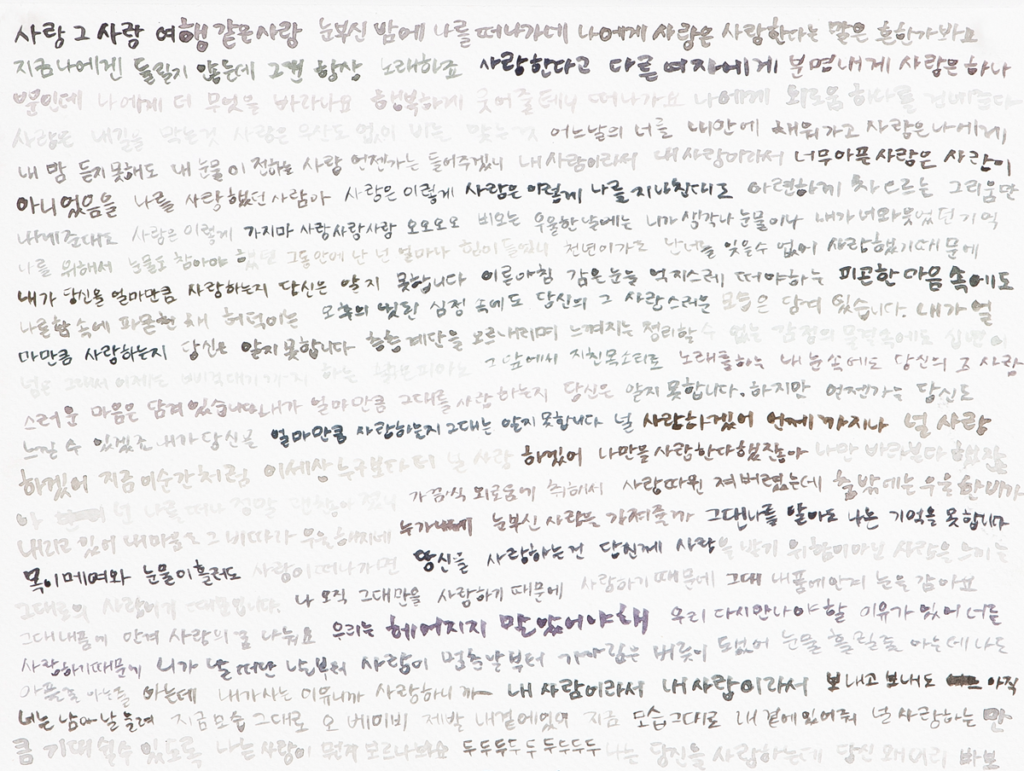 사랑 그 사랑 여행 같은 사랑 눈부신 밤에 나를 떠나가네 나에게 사랑은 사랑한다는 말은 흔한가봐
지금 나에겐 들릴지 않는데 그댄 항상 노래하죠 사랑한다고 다른 여자에게 분명 내게 사랑은 하나
뿐인데 나에게 더 무엇을 바라나요 행복하게 웃어줄테니 떠나가요 나에게 외로움 하나를 건네준다
사랑은 내길을 막는것 사랑은 우산도 없이 비를 맞는것 어느날의 너를 내안에 채워가고 사랑은 나에게
내 맘 듣지 못해도 내 눈물이 전하는 사랑 언젠가는 들어주겠니 내 사랑이라서 내 사랑이라서 너무 아픈 사랑은 사랑이
아니었음을 나를 사랑했던 사람아 사랑은 이렇게 사랑은 이렇게 나를 지나친대도 아련하게 차오르는 그리움만
남겨준대도 사랑은 이렇게 가지마 사랑사랑사랑 오오오오 비오는 우울한 날에는 네가 생각나 눈물이나 내가 너와 웃었던 기억
너를 위해서 눈물도 참아야 했던 그동안에 난 넌 얼마나 힘이 들었니 천년이 가도 난 너를 잊을수 없어 사랑했기 때문에
내가 당신을 얼마만큼 사랑하는지 당신은 알지 못합니다 이른아침 감은 눈을 억지스레 떠야하는 피곤한 마음 속에도
나른함 속에 파묻힌 채 허덕이는 오후의 심정 속에도 당신의 그 사랑스러운 모습은 담겨 있습니다. 내가 얼
마만큼 사랑하는지 당신은 알지 못합니다 층층 계단을 오르내리며 느껴지는 정리할 수 없는 감정의 물결 속에도 십년이
넘은 그대에서 하는 낡은 피아노 그 앞에서 지친 목소리로 노래를 하는 내 눈 속에도 당신의 그 사랑
스러운 마음은 담겨 있습니다 내가 얼마만큼 그대를 사랑하는지 당신은 알지 못합니다. 하지만 언젠가는 당신도
느낄 수 있겠죠 내가 당신을 얼마만큼 사랑하는지 그대는 알지 못합니다 널 사랑하겠어 언제까지나 널 사랑
하겠어 지금 이순간처럼 이세상 누구보다 더 널 사랑 하겠어 나만을 사랑한다 했잖아 나만 바라본다 했잖
아 넌 나를 떠나 정말 괜찮아 졌니 가끔씩 외로움에 취해서 사랑따윈 져버렸는데 창밖에는 우울한 비가
내리고 있어 내 마음도 그 비따라 우울해지네 누가 눈부신 사랑을 가져줄까 그대 나를 알아도 나는 기억을 못합니다
목이 메여와 눈물이 흘러도 사랑이 떠나가면 당신을 사랑하는건 당신께 사랑을 받기 위함이 아닌 사랑을 느끼는
그대로의 사랑이기 때문입니다. 나 오직 그대만을 사랑하기 때문에 사랑하기 때문에 그대 내품에 안겨 눈을 감아요
그대 내품에 안겨 사랑의 꿈 나눠요 우리는 헤어지지 말았어야해 우리 다시 만나야 할 이유가 있어 너를
사랑하기 때문에 니가 날 떠난 난 부터 사랑이 멈출날부터 가 버릇이 됐어 눈물 흘릴줄 아는데 나도
아플줄 아는데 내가 사는 이유니까 사랑하니까 내 사랑이라서 내 사랑이라서 보내고 보내도 아직
너는 남아 날 울려 지금 모습 그대로 오 베이비 제발 내 곁에 있어 지금 모습 그대로 내 곁에 있어줘 널 사랑하는 만
큼 기대 쉴수 있도록 나는 사랑이 뭔지 모르나봐요 두두두두두 두두두두 나는 당신을 사랑하는데 당신 왜 이리 바보